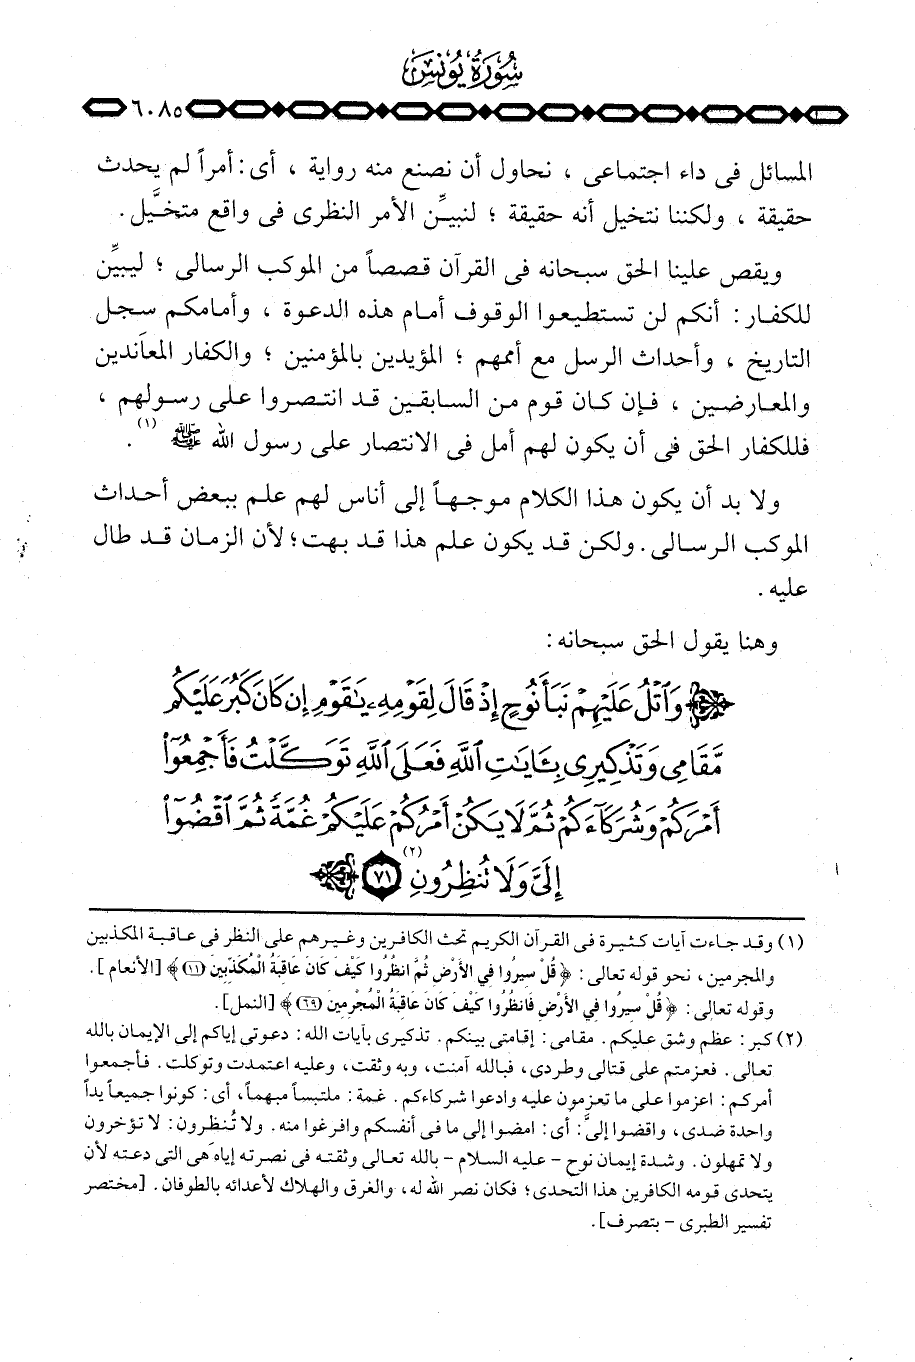 سُورَةُ يُونُسَ
٦٠٨٥
المسائل فى داء اجتماعى ، نحاول أن نصنع منه رواية ، أى: أمراً لم يحدث
حقيقة ، ولكننا نتخيل أنه حقيقة ؛ لنبيِّن الأمر النظرى فى واقع متخيَّل.
ويقص علينا الحق سبحانه فى القرآن قصصاً من الموكب الرسالى ؛ ليبيِّن
للكفار: أنكم لن تستطيعوا الوقوف أمام هذه الدعوة ، وأمامكم سجل
التاريخ ، وأحداث الرسل مع أممهم ؛ المؤيدين بالمؤمنين ؛ والكفار المعاندين
والمعارضين ، فإن كان قوم من السابقين قد انتصروا على رسولهم ،
فللكفار الحق فى أن يكون لهم أمل فى الانتصار على رسول الله ﷺ (١).
ولا بد أن يكون هذا الكلام موجهاً إلى أناس لهم علم ببعض أحداث
الموكب الرسالى. ولكن قد يكون علم هذا قد بهت؛ لأن الزمان قد طال
عليه .
وهنا يقول الحق سبحانه:
﴿ وَٱتۡلُ عَلَيۡهِمۡ نَبَأَ نُوحٍ إِذۡ قَالَ لِقَوۡمِهِۦ يَٰقَوۡمِ إِن كَانَ كَبُرَ عَلَيۡكُم
مَّقَامِى وَتَذۡكِيرِى بِـَٔايَٰتِ ٱللَّهِ فَعَلَى ٱللَّهِ تَوَكَّلۡتُ فَأَجۡمِعُوٓاْ
أَمۡرَكُمۡ وَشُرَكَآءَكُمۡ ثُمَّ لَا يَكُنۡ أَمۡرُكُمۡ عَلَيۡكُمۡ غُمَّةٗ ثُمَّ ٱقۡضُوٓاْ
إِلَىَّ وَلَا تُنظِرُونِ (٢) ٧١ ﴾
(١) وقد جاءت آيات كثيرة فى القرآن الكريم تحث الكافرين وغيرهم على النظر فى عاقبة المكذبين
والمجرمين، نحو قوله تعالى: ﴿ قُلْ سِيرُوا فِي الأَرْضِ ثُمَّ انظُرُوا كَيْفَ كَانَ عَاقِبَةُ الْمُكَذِّبِينَ (١١) ﴾ [الأنعام].
وقوله تعالى: ﴿ قُلْ سِيرُوا فِي الأَرْضِ فَانظُرُوا كَيْفَ كَانَ عَاقِبَةُ الْمُجْرِمِينَ (٦٩) ﴾ [النمل].
(٢) كبر: عظم وشق عليكم. مقامى: إقامتى بينكم. تذكيرى بآيات الله: دعوتى إياكم إلى الإيمان بالله
تعالى. فعزمتم على قتالى وطردى، فبالله آمنت، وبه وثقت، وعليه اعتمدت وتوكلت. فأجمعوا
أمركم: اعزموا على ما تعزمون عليه وادعوا شركاءكم. غمة: ملتبساً مبهماً، أى: كونوا جميعاً يداً
واحدة ضدى، واقضوا إلىَّ: أى: امضوا إلى ما فى أنفسكم وافرغوا منه. ولا تُنظرون: لا تؤخرون
ولا تمهلون. وشدة إيمان نوح - عليه السلام - بالله تعالى وثقته فى نصرته إياه هى التى دعته لأن
يتحدى قومه الكافرين هذا التحدى؛ فكان نصر الله له، والغرق والهلاك لأعدائه بالطوفان. [مختصر
تفسير الطبرى - بتصرف].